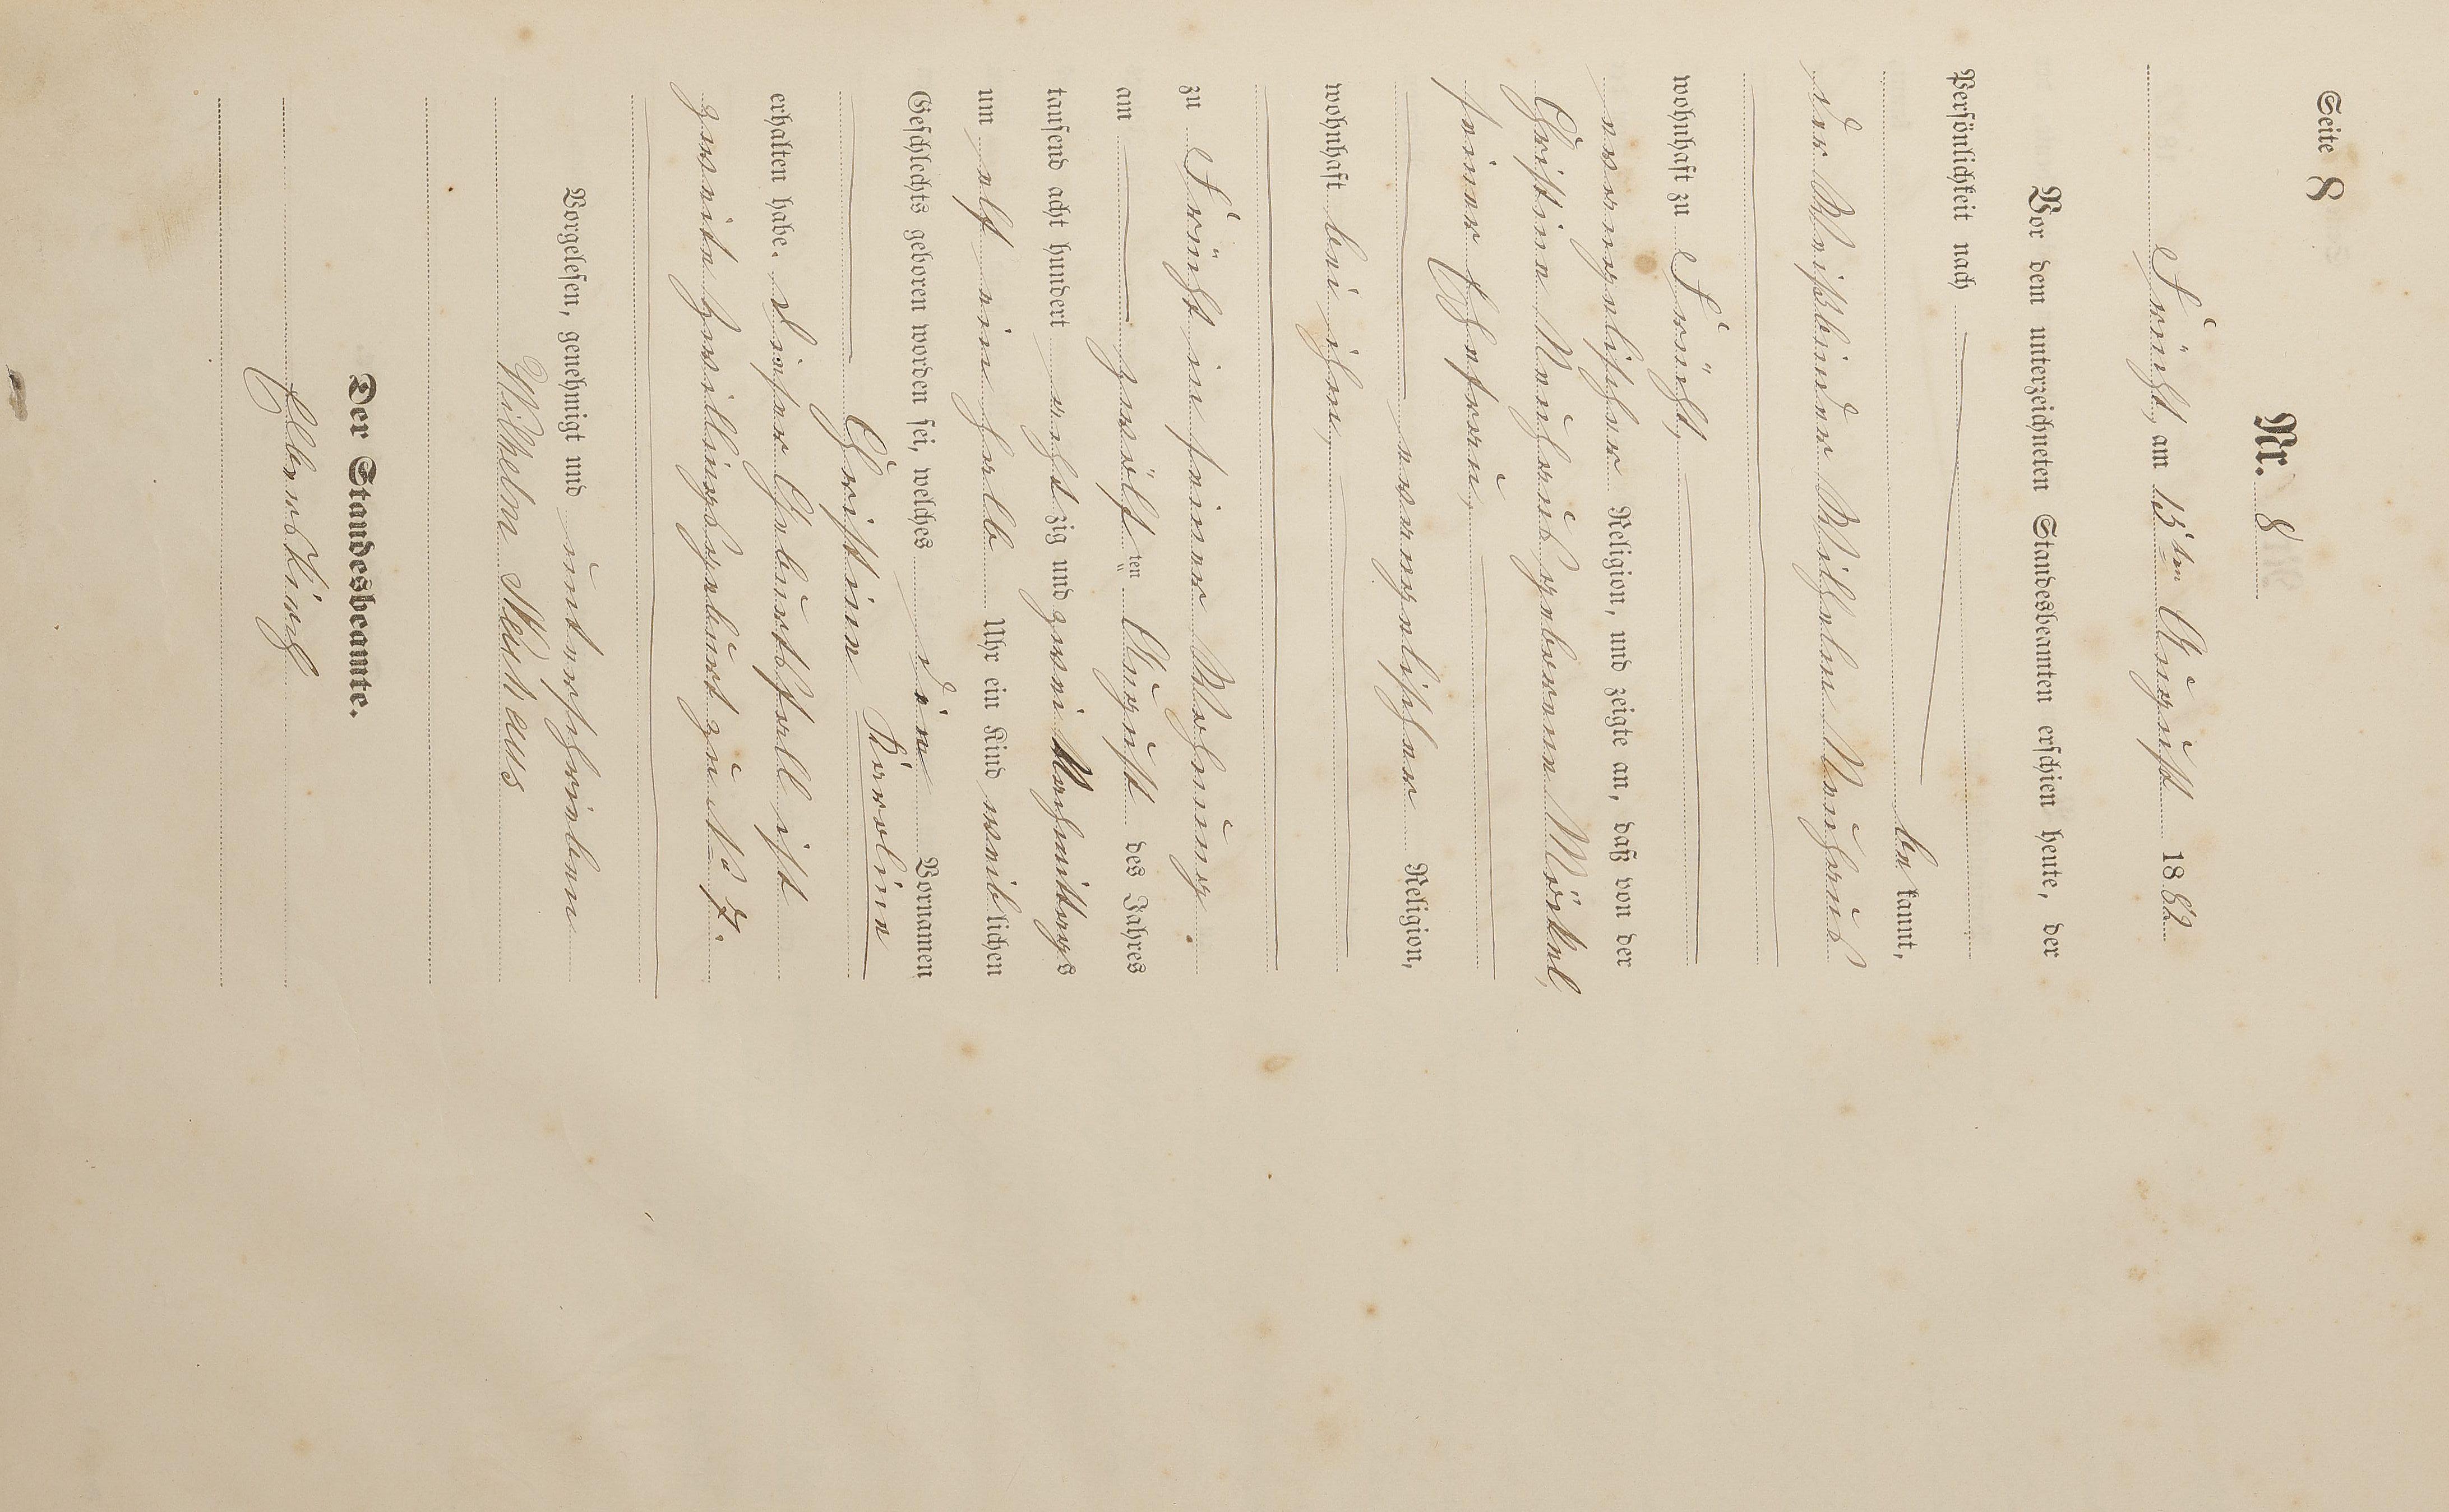 Seite 8
Nr. 8
Frücht, am 13ten August 1882
Vor dem unterzeichneten Standesbeamten erschien heute, der
Persönlichkeit nach
be kannt,
der Weißbinder Wilhelm
wohnhaft zu Frücht,
evangelischer Religion, und zeigte an, daß von der
Christine geborene
seiner Ehefrau,
evangelischer Religion,
wohnhaft bei ihm,
zu Frücht in seiner Wohnung
am zwölf ten August des Jahres
tausend acht hundert acht zig und zwei Nachmittags
um elf ein halb Uhr ein Kind weib lichen
Geschlechts geboren worden sei, welches den Vornamen
Christine Karoline
erhalten habe. Dieser Geburtsfall ist
zweite Zwillingsgeburt zu No 7.
Vorgelesen, genehmigt und unterschrieben
Wilhelm
Der Standesbeamte.